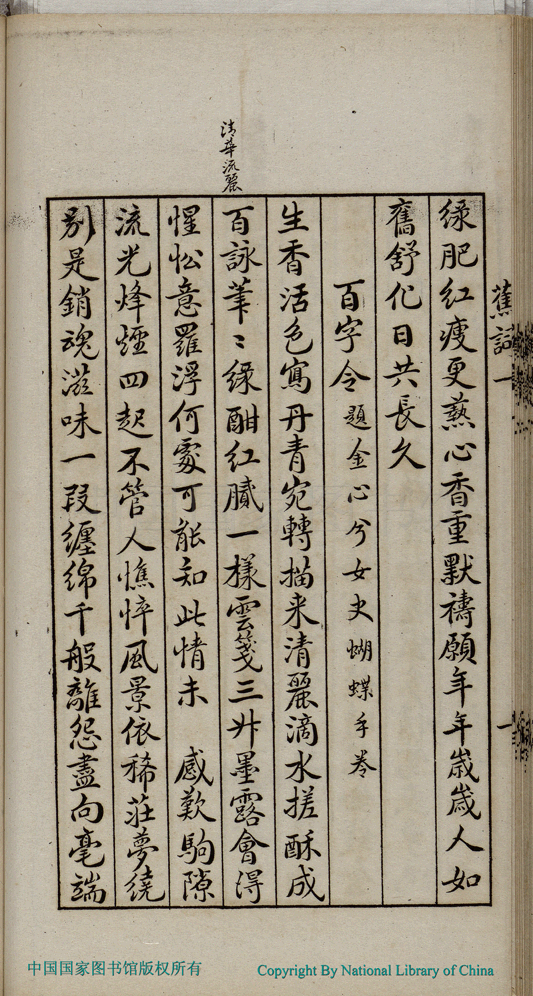 蕉詞
一
一
綠肥紅瘦更爇心香重默禱願年年歲歲人如
舊舒化日共長久
百字令 題金心兮女史蝴蝶手卷
生香活色寫丹青宛轉描来清麗滴水搓酥成
百詠茟〻綠酣紅膩一樣雲箋三廾墨露會得
惺忪意羅浮何處可能知此情未 感歎駒隙
流光烽煙四起不管人憔悴風景依稀莊夢繞
別是銷魂滋味一段纏綿千般離怨盡向毫端
清華流麗
中国国家图书馆版权所有
Copyright By National Library of China